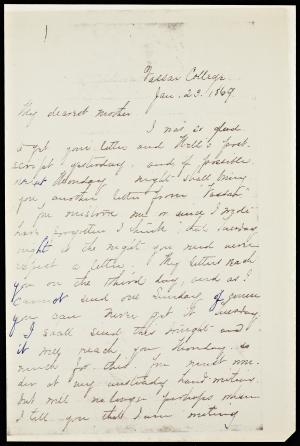 Vassar College.
Jan. 23. 1869.
My dearest mother
I was so glad
to get your letter and Will's post-
script yesterday, and if possible
next Monday night shall bring
you another letter from "Vassar"
You misunderstood me or since I wrote
have forgotten I think that Tuesday
night is the night you need never
expect a letter. My letters reach
you on the third day, and as I
cannot send one Sunday of course
you can never get it Tuesday
I shall send this tonight and
it will reach you Monday. so
much for this. You must won-
der at my unsteady hand writing
but will no longer perhaps when
I tell you that I am writing